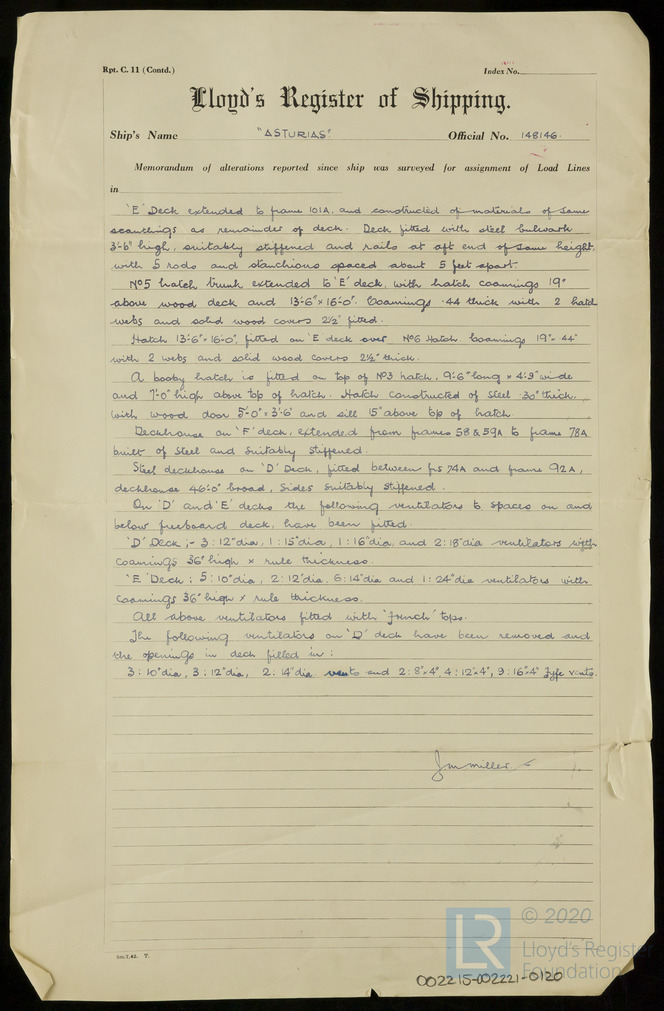 Rpt. C. 11 (Contd.)
Index No.
Lloyd's Register of Shipping.
Ship's Name "ASTURIAS" Official No. 148146.
Memorandum of alterations reported since ship was surveyed for assignment of Load Lines
in
'E' Deck extended to frame 101A, and constructed of materials of same
scantlings as remainder of deck. Deck fitted with steel bulwark
3'-6" high, suitably stiffened and rails at aft end of same height,
with 5 rods and stanchions spaced about 5 feet apart.
Nº5 hatch trunk extended to 'E' deck, with hatch coamings 19"
above wood deck and 13'-6" × 16'-0". Coamings ·44 thick with 2 hatch
webs and solid wood covers 2½" fitted.
Hatch 13'-6" × 16'-0" fitted on 'E' deck over Nº6 Hatch. Coamings 19" × ·44"
with 2 webs and solid wood covers 2½" thick.
A booby hatch is fitted on top of Nº3 hatch, 9'-6" long × 4'-9" wide
and 7'-0" high above top of hatch. Hatch constructed of steel ·30" thick,
with wood door 5'-0" × 3'-6" and sill 15" above top of hatch.
Deckhouse on 'F' deck, extended from frames 58 & 59A to frame 78A
built of steel and suitably stiffened.
Steel deckhouse on 'D' Deck, fitted between frs 74A and frame 92A,
deckhouse 46'-0" broad, sides suitably stiffened.
On 'D' and 'E' decks the following ventilators to spaces on and
below freeboard deck, have been fitted.
'D' Deck ;- 3 : 12" dia, 1 : 15" dia, 1 : 16" dia, and 2 : 18" dia ventilators with
coamings 36" high × rule thickness.
'E' Deck : 5 : 10" dia, 2 : 12" dia, 6 : 14" dia and 1 : 24" dia ventilators with
coamings 36" high × rule thickness.
All above ventilators fitted with 'French' tops.
The following ventilators on 'D' deck have been removed and
the openings in deck filled in :
3 : 10" dia, 3 : 12" dia, 2 : 14" dia vents and 2 : 8" × 4", 4 : 12" × 4", 9 : 16" × 4" Fyfe vents.
J M Miller
5m.7,42. T.
LR © 2020
Lloyd's Register
Foundation
002215-002221-0120